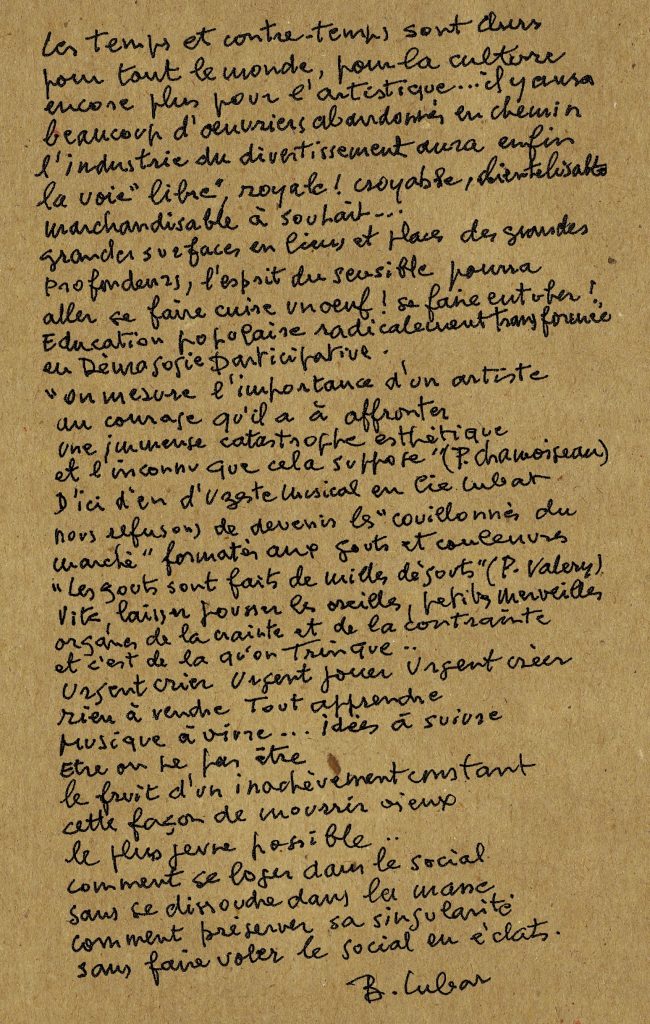 Les temps et contre-temps sont durs
pour tout le monde, pour la culture
encore plus pour l'artistique... il y aura
beaucoup d'oeuvriers abandonnés en chemin
l'industrie du divertissement aura enfin
la voie "libre", royale! croyable, clientélisable
marchandisable à souhait...
grandes surfaces en lieux et places des grandes
profondeurs, l'esprit du sensible pourra
aller se faire cuire un oeuf! se faire entuber!
Education populaire radicalement transformée
en Démagogie participative.
"on mesure l'importance d'un artiste
au courage qu'il a à affronter
une immense catastrophe esthétique
et l'inconnu que cela suppose" (P. Chamoiseau)
D'ici d'en d'Uzeste musical en Cie Lubat
nous refusons de devenir les "couillonnés du
marché" formatés aux gouts et couleuvres
"Les gouts sont faits de milles dégouts" (P. Valery)
Vite, laisser pousser les oreilles, petites merveilles
organes de la crainte et de la contrainte
et c'est de la qu'on Trinque..
Urgent crier Urgent jouer Urgent créer
rien à vendre Tout apprendre
Musique à vivre... idées à suivre
Etre ou ne pas être
le fruit d'un inachèvement constant
cette façon de mourrir vieux
le plus jeune possible..
comment se loger dans le social
sans se dissoudre dans la masse
comment préserver sa singularité
sans faire voler le social en éclats.
B. Lubat